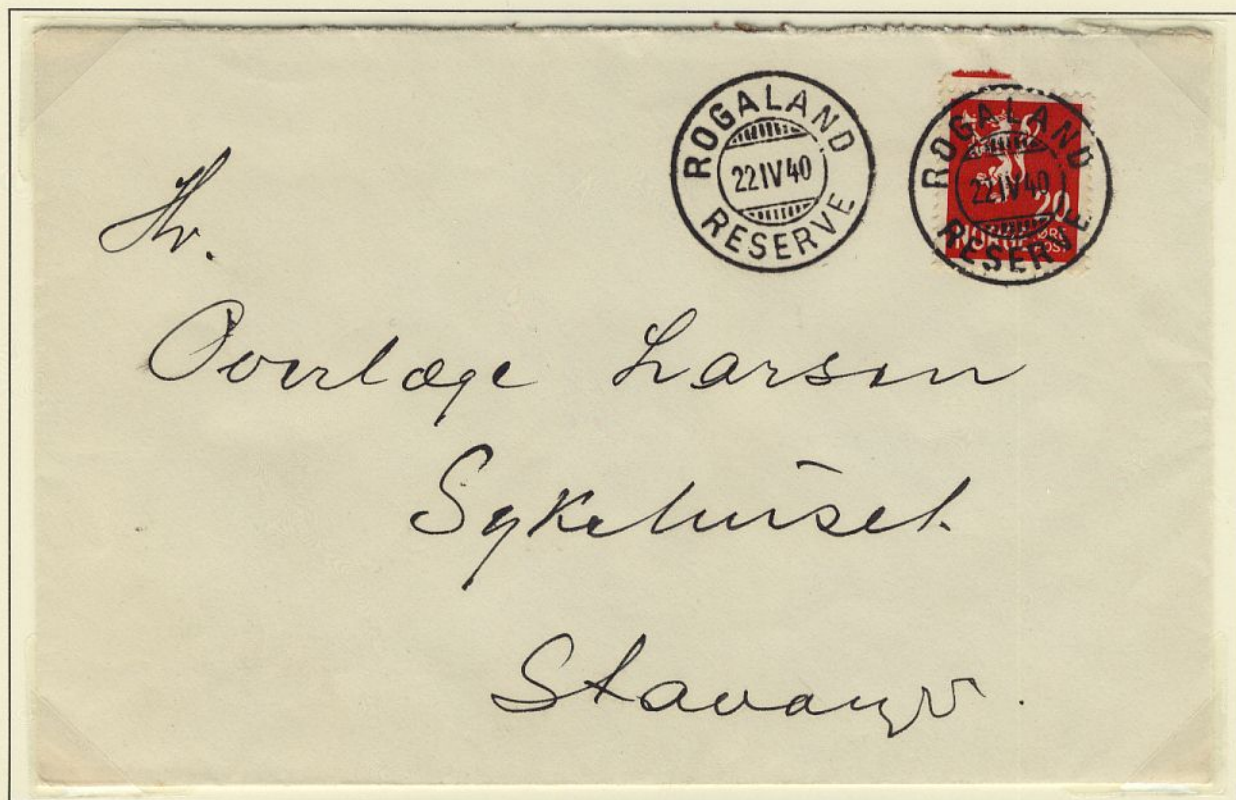 ROGALAND
22 IV 40
RESERVE
ROGALAND
22 IV 40
RESERVE
20
NORGE ØRE
POST
Hr.
Overlæge Larsen
Sykehuset.
Stavanger.